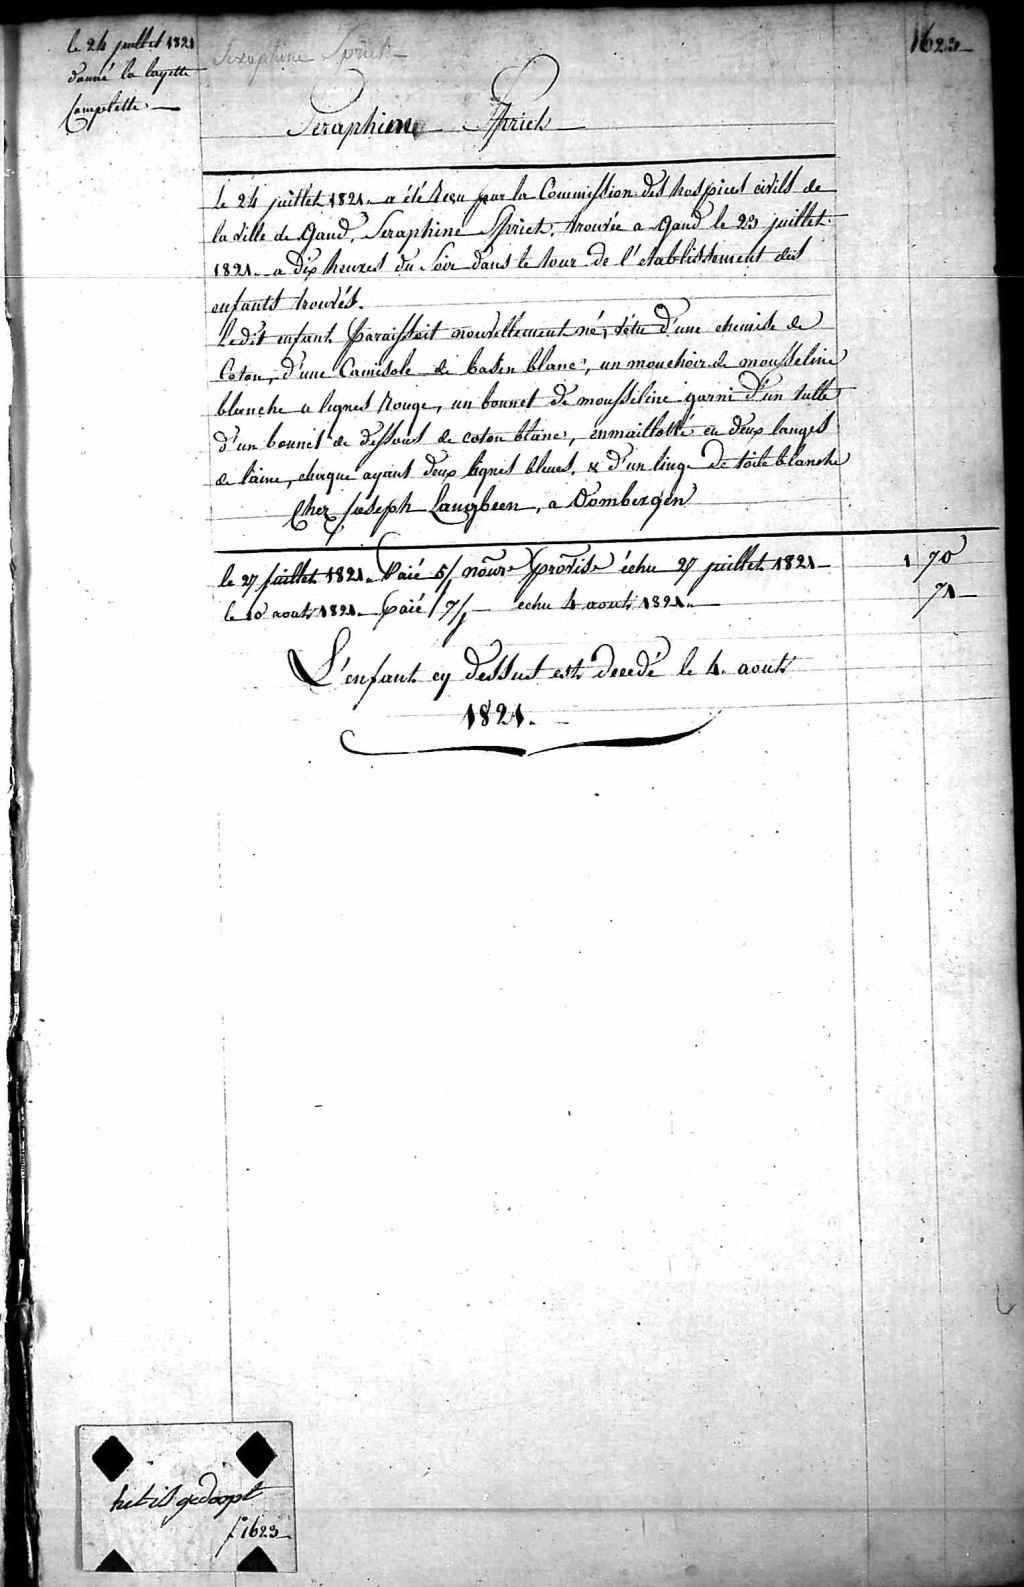 le 24 juillet 1821
donné la layette
Complette
1623
Seraphine Spriet
Seraphine Spriet
Le 24 juillet 1821. a été Recu par la Commission des hospices civils de
la ville de Gand, Seraphine Spriet, trouvée a Gand le 23 juillet
1821. a dix heures du soir dans le tour de l'etablissement des
enfants trouvés.
Ledit enfant Paraissoit nouvellement né, vétu d'une chemise de
Coton, d'une Camisole de basin blanc, un mouchoir de mousseline
blanche a lignes Rouge, un bonnet de mousseline garni d'un tulle
d'un bonnet de dessous de coton blanc, enmaillotté en deux langes
de laine, chaque ayant deux lignes bleues, & d'un linge de toile blanche
Chez Joseph Langbeen, a Vombergen
le 27 juillet 1821. Paié 5/j nourre provise échu 27 juillet 1821 1 70
le 10 aout 1821. Paié 7/j echu 4 aout 1821. 71
L'enfant cy dessus est decedé le 4. aout
1821.
het is gedoopt
f° 1623